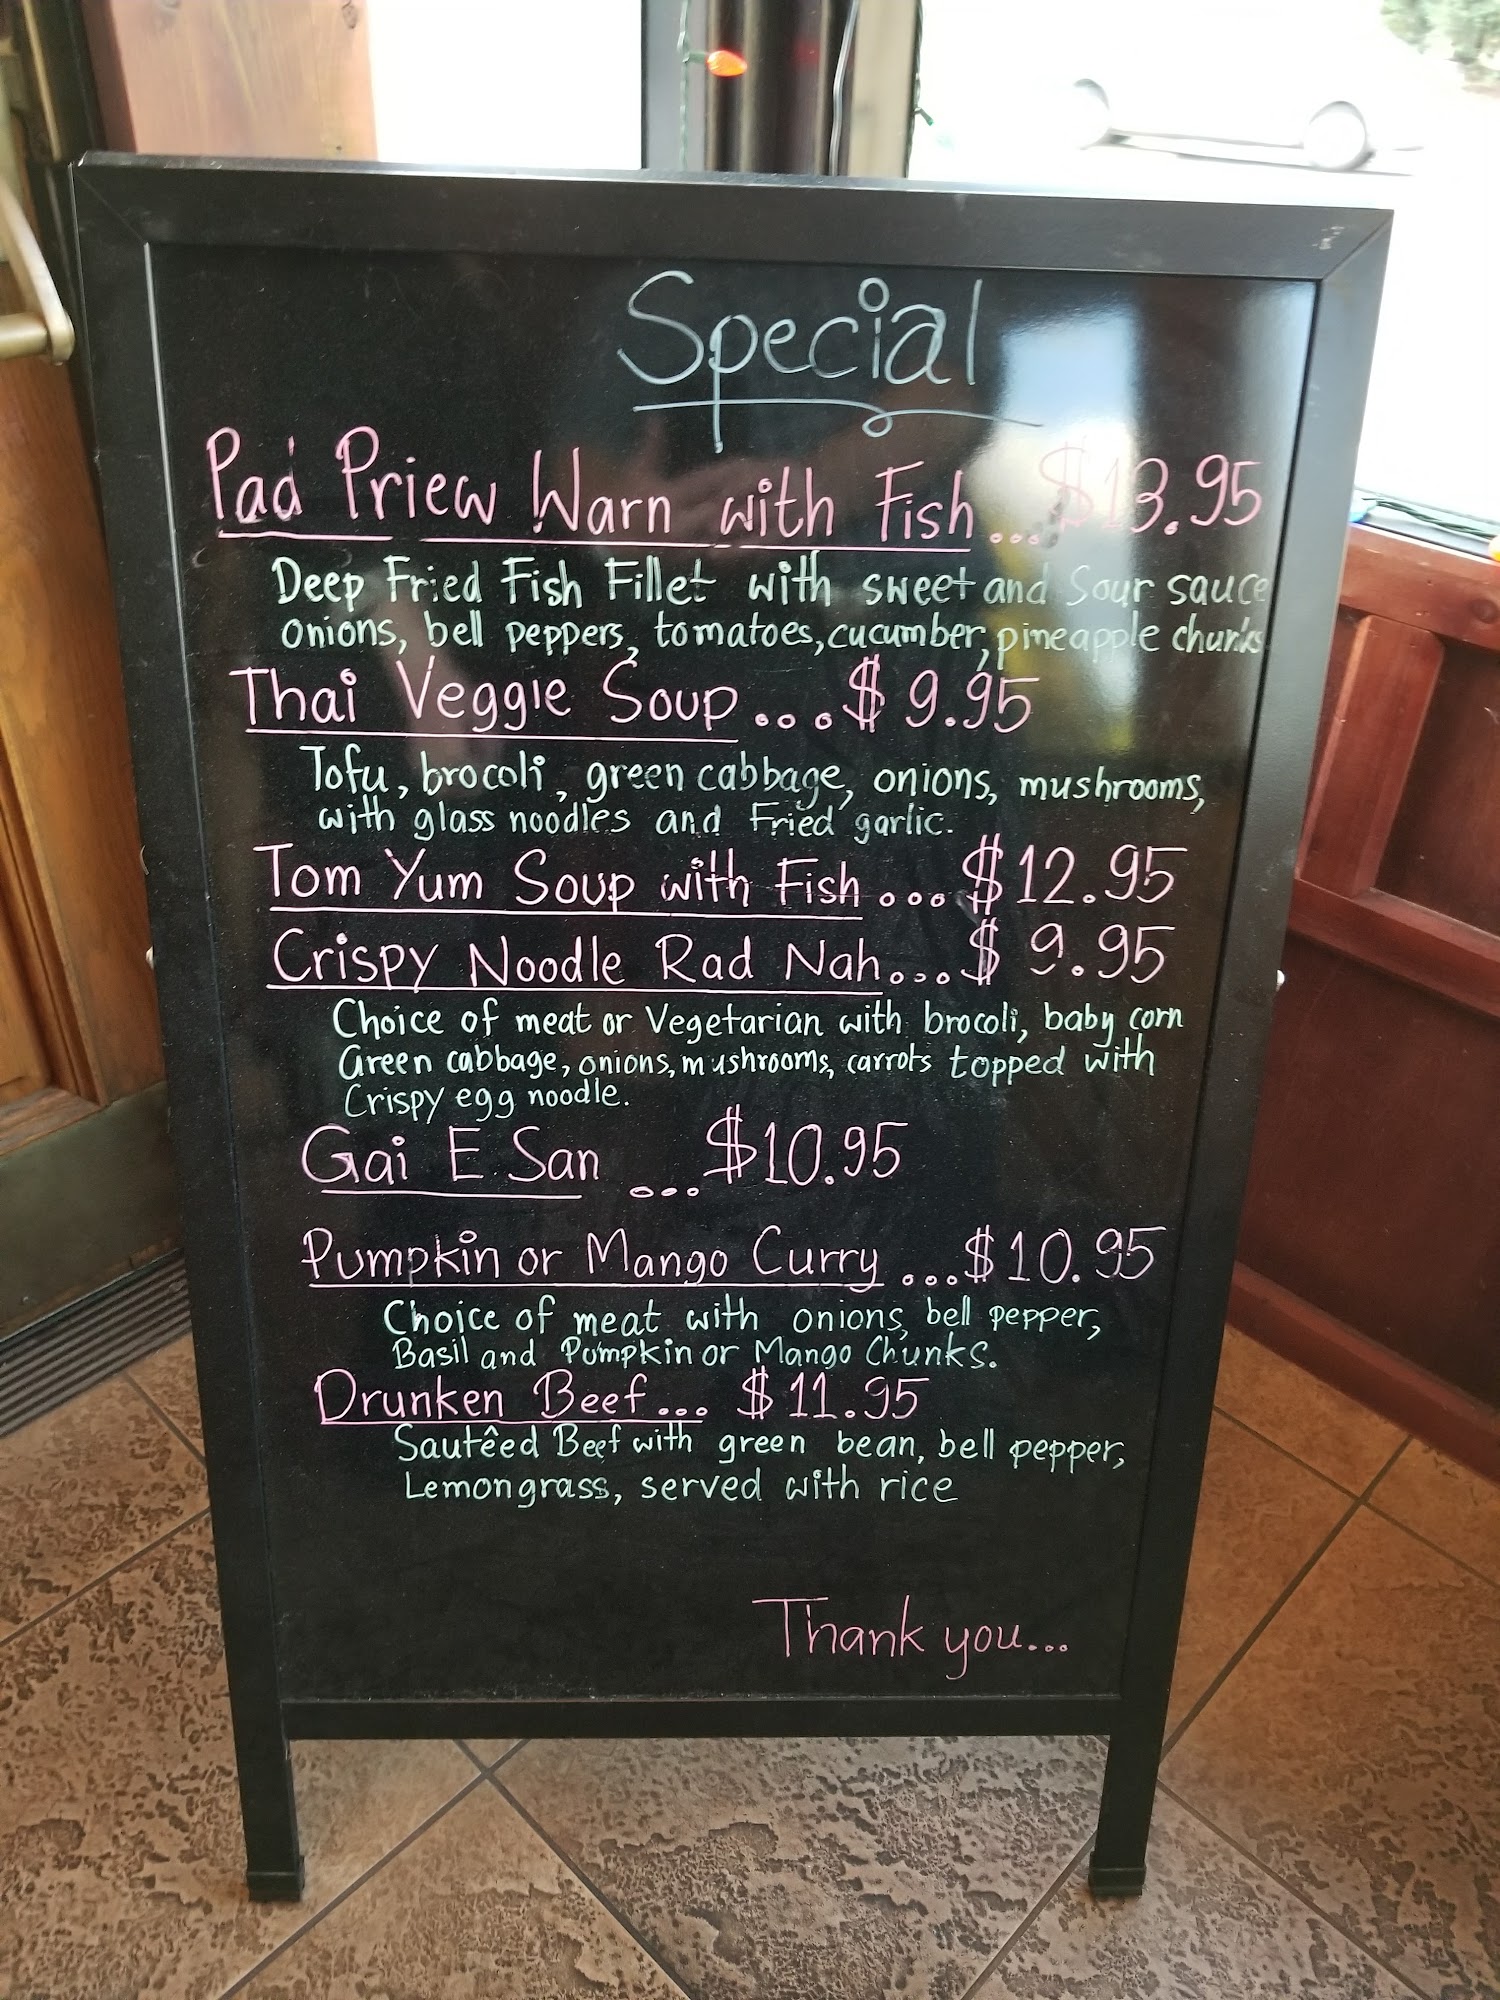 Special
Pad Priew Warn with Fish...$13.95
Deep Fried Fish Fillet with sweet and Sour sauce
onions, bell peppers, tomatoes, cucumber, pineapple chunks
Thai Veggie Soup...$9.95
Tofu, brocoli, green cabbage, onions, mushrooms,
with glass noodles and Fried garlic.
Tom Yum Soup with Fish...$12.95
Crispy Noodle Rad Nah...$9.95
Choice of meat or Vegetarian with brocoli, baby corn
Green cabbage, onions, mushrooms, carrots topped with
Crispy egg noodle.
Gai E San ...$10.95
Pumpkin or Mango Curry...$10.95
Choice of meat with onions, bell pepper,
Basil and Pumpkin or Mango Chunks.
Drunken Beef... $11.95
Sautêed Beef with green bean, bell pepper,
Lemongrass, served with rice
Thank you...